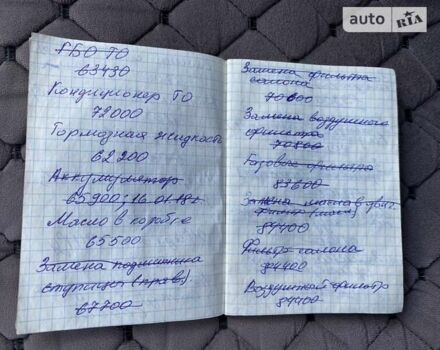 auto RIA
ГБО ТО
63430
Кондиционер ТО
72000
Тормозная жидкость
62200
Аккумулятор
65900; 16.01.18г
Масло в коробке
65500
Замена подшипника
ступицы (прав.)
67700
Замена фильтра
салона
70600
Замена воздушного
фильтра
70800
Газовые фильтра
83600
Замена масла в двиг.
фильтр (масл)
84400
Фильтр салона
84400
Воздушный фильтр
84400